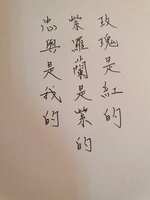 玫瑰是紅的
紫羅蘭是紫的
與是我的